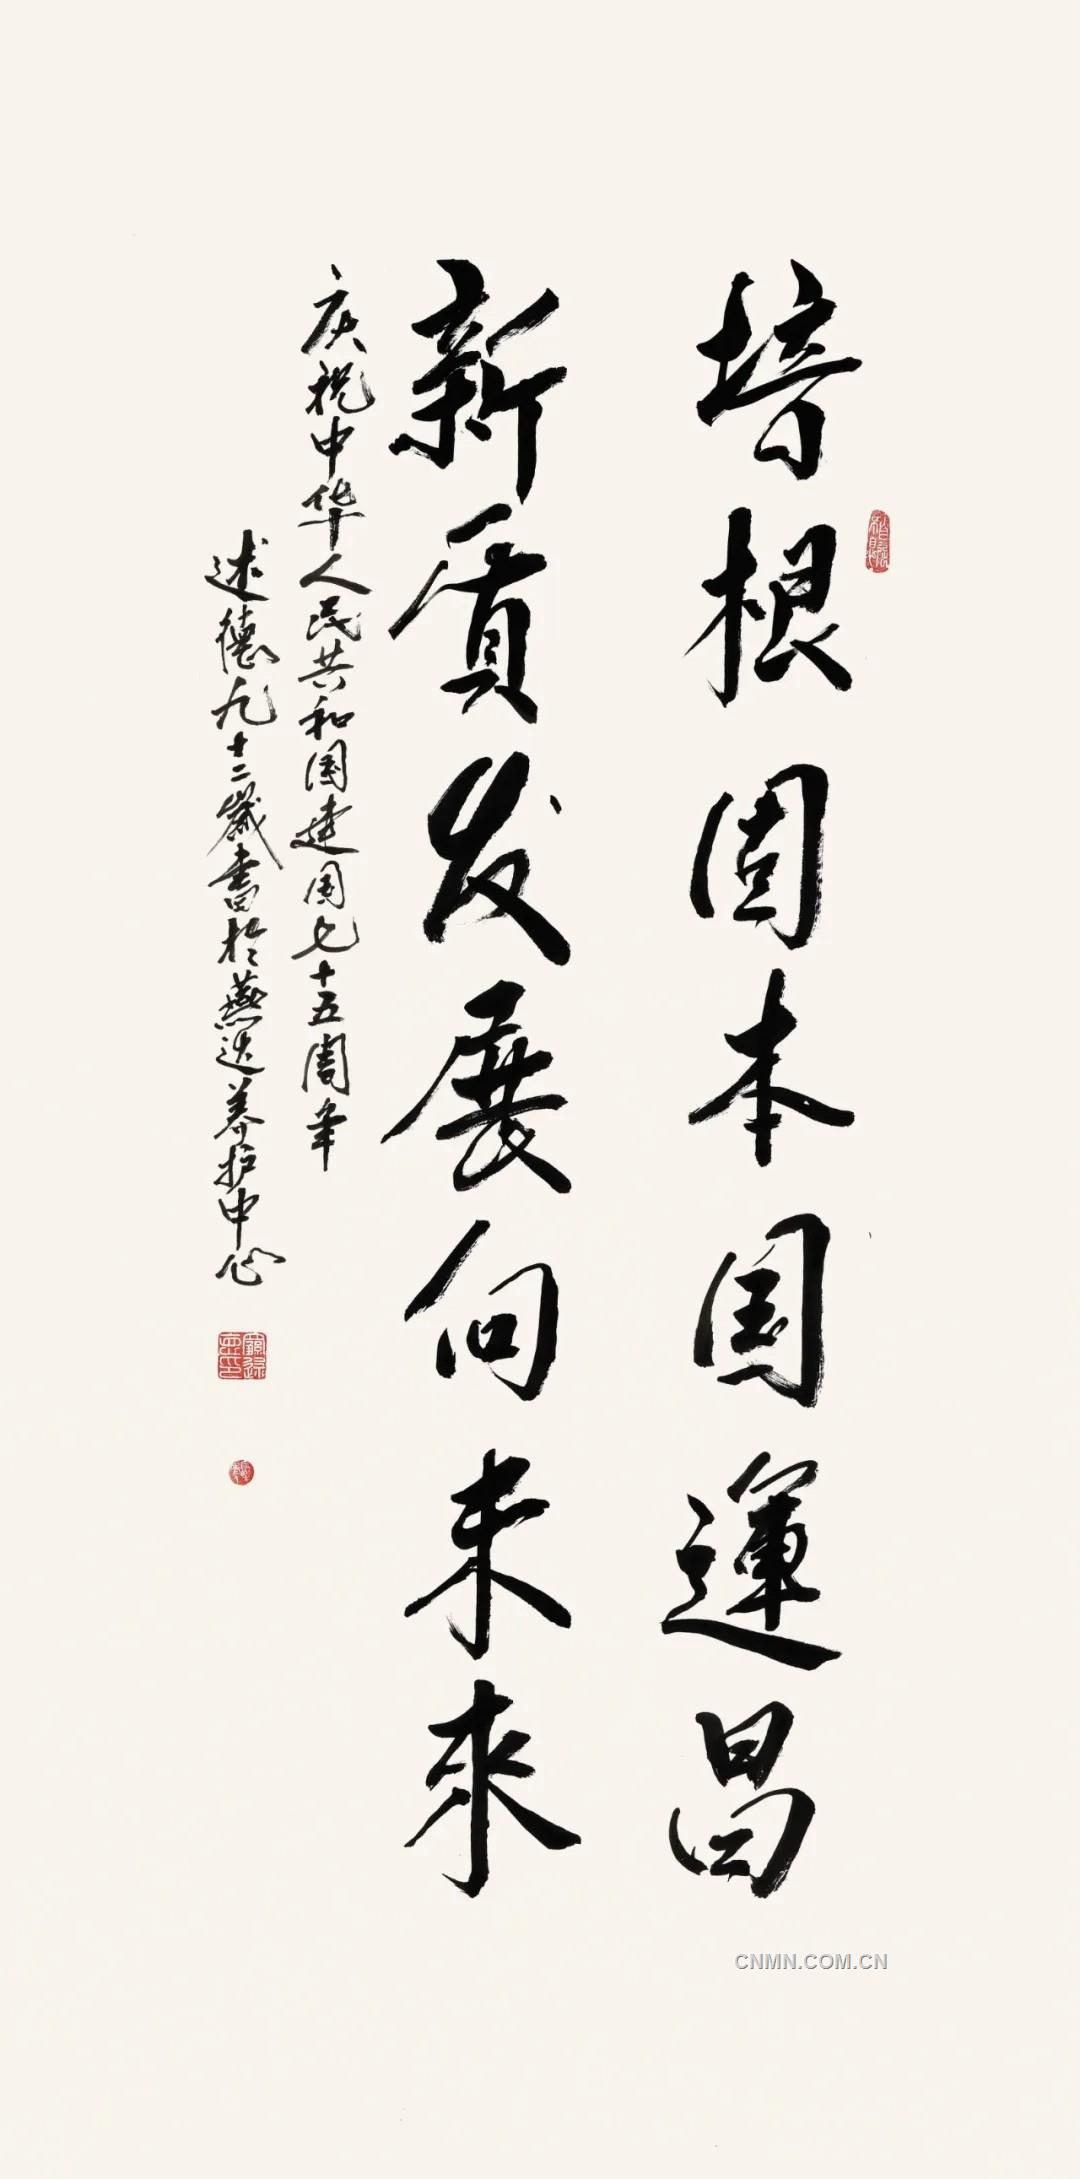 培根固本国運昌
新质发展向未来
庆祝中华人民共和国建国七十五周年
述德九十二岁書於燕达养护中心
CNMN.COM.CN